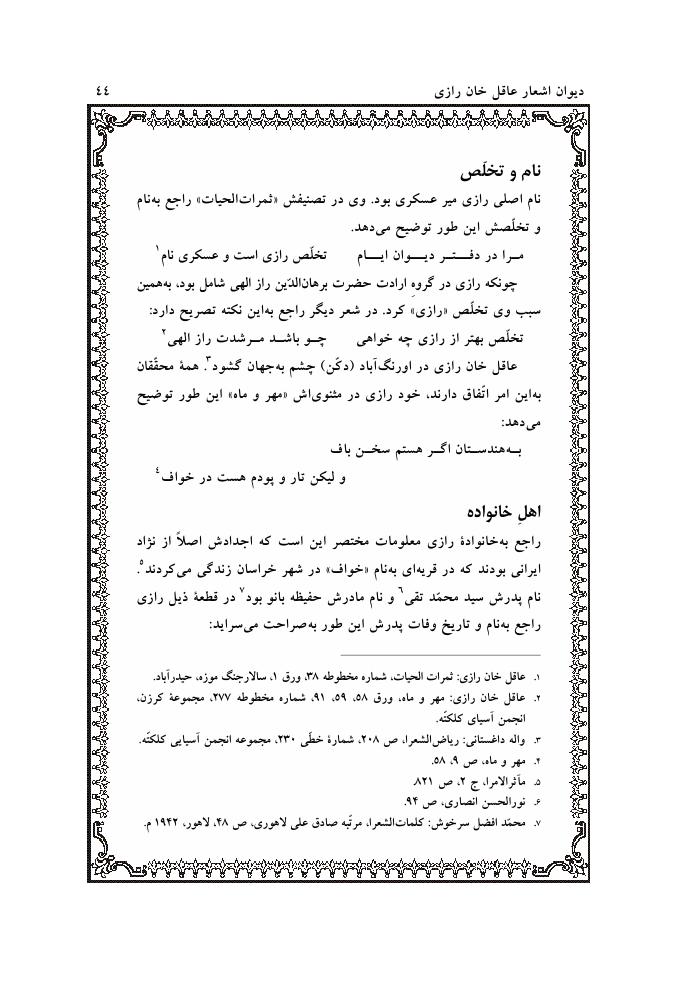 دیوان اشعار عاقل خان رازی ٤٤
نام و تخلّص
نام اصلی رازی میر عسکری بود. وی در تصنیفش «ثمرات‌الحیات» راجع به‌نام
و تخلّصش این طور توضیح می‌دهد.
مـرا در دفـتـر دیـوان ایـام تخلّص رازی است و عسکری نام۱
چونکه رازی در گروهِ ارادت حضرت برهان‌الدّین راز الهی شامل بود، به‌همین
سبب وی تخلّص «رازی» کرد. در شعر دیگر راجع به‌این نکته تصریح دارد:
تخلّص بهتر از رازی چه خواهی چـو باشـد مـرشدت راز الهی۲
عاقل خان رازی در اورنگ‌آباد (دکّن) چشم به‌جهان گشود۳. همهٔ محقّقان
به‌این امر اتّفاق دارند، خود رازی در مثنوی‌اش «مهر و ماه» این طور توضیح
می‌دهد:
بـه‌هندسـتان اگـر هستم سخـن باف
و لیکن تار و پودم هست در خواف٤
اهلِ خانواده
راجع به‌خانوادهٔ رازی معلومات مختصر این است که اجدادش اصلاً از نژاد
ایرانی بودند که در قریه‌ای به‌نام «خواف» در شهر خراسان زندگی می‌کردند۵.
نام پدرش سید محمّد تقی۶ و نام مادرش حفیظه بانو بود۷ در قطعهٔ ذیل رازی
راجع به‌نام و تاریخ وفات پدرش این طور به‌صراحت می‌سراید:
۱. عاقل خان رازی: ثمرات الحیات، شماره مخطوطه ۳۸، ورق ۱، سالارجنگ موزه، حیدرآباد.
۲. عاقل خان رازی: مهر و ماه، ورق ۵۸، ۵۹، ۹۱، شماره مخطوطه ۲۷۷، مجموعهٔ کرزن،
انجمن آسیای کلکتّه.
۳. واله داغستانی: ریاض‌الشعرا، ص ۲۰۸، شمارهٔ خطّی ۲۳۰، مجموعه انجمن آسیایی کلکتّه.
۴. مهر و ماه، ص ۹، ۵۸.
۵. مآثرالامرا، ج ۲، ص ۸۲۱.
۶. نورالحسن انصاری، ص ۹۴.
۷. محمّد افضل سرخوش: کلمات‌الشعرا، مرتّبه صادق علی لاهوری، ص ۴۸، لاهور، ۱۹۴۲ م.